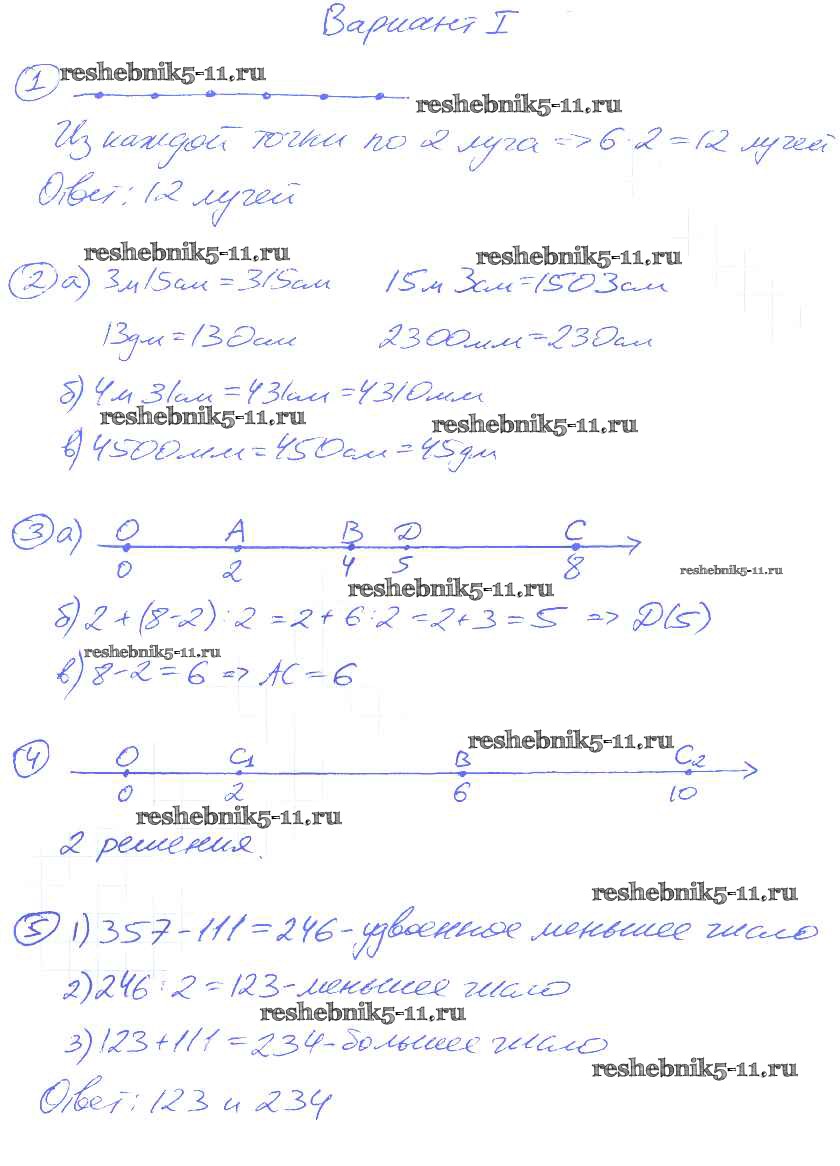 Вариант I
reshebnik5-11.ru
1
reshebnik5-11.ru
Из каждой точки по 2 луча => 6·2=12 лучей
Ответ: 12 лучей
reshebnik5-11.ru reshebnik5-11.ru
2 а) 3м15см=315см 15м 3см=1503см
13дм=130см 2300мм=230см
б) 4м 31см=431см=4310мм
reshebnik5-11.ru reshebnik5-11.ru
в) 4500мм=450см=45дм
3 а) O A B D C
0 2 4 5 8
reshebnik5-11.ru
reshebnik5-11.ru
б) 2+(8-2):2=2+6:2=2+3=5 => D(5)
reshebnik5-11.ru
в) 8-2=6 => AC=6
reshebnik5-11.ru
4 O C1 B C2
0 2 6 10
reshebnik5-11.ru
2 решения.
reshebnik5-11.ru
5 1) 357-111=246-удвоенное меньшее число
2) 246:2=123-меньшее число
reshebnik5-11.ru
3) 123+111=234-большее число
reshebnik5-11.ru
Ответ: 123 и 234